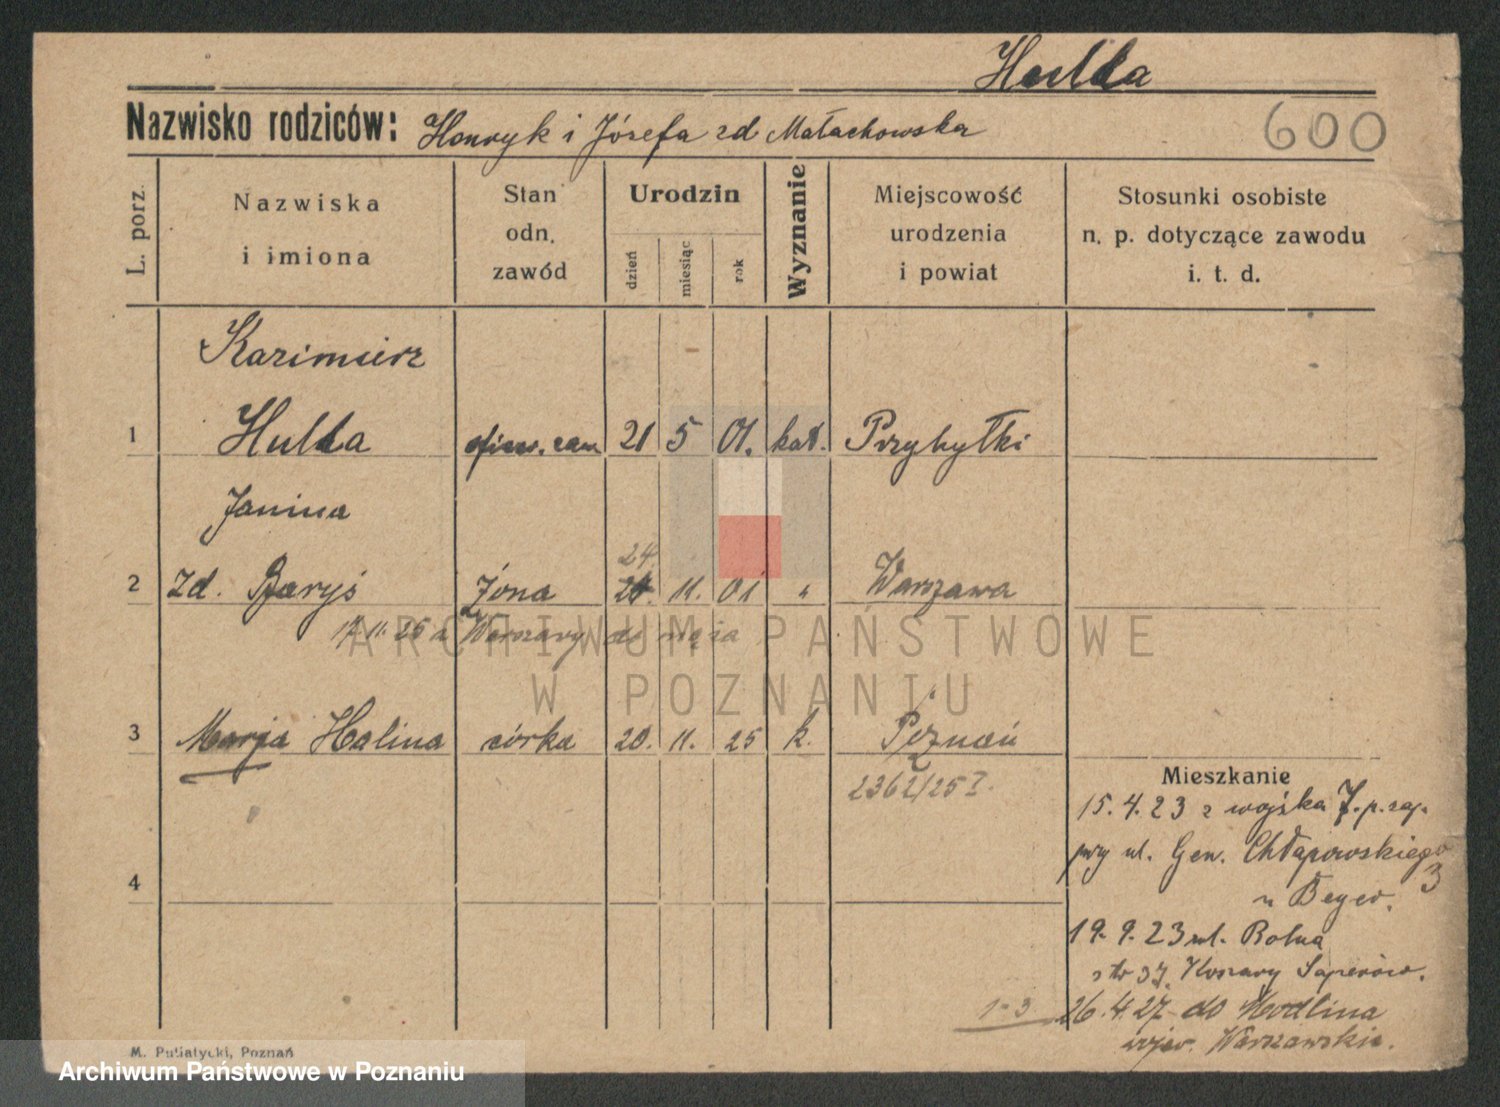 Hulda
Nazwisko rodziców: Henryk i Józefa zd Małachowska
600
L. porz.
Nazwiska
i imiona
Stan
odn.
zawód
Urodzin
dzień
miesiąc
rok
Wyznanie
Miejscowość
urodzenia
i powiat
Stosunki osobiste
n. p. dotyczące zawodu
i. t. d.
Kazimierz
1 Hulda 21 5 01. kat. Przybyłki
Janina
24.
2 zd. Baryś żona 11. 01 " Warszawa
17.11.25 z Warszawy do męża
3 Marja Halina córka 20. 11. 25 k. Poznań
2362/25 I.
Mieszkanie
15.4.23 z wojska 7.p.sap.
przy ul. Gen. Chłapowskiego
3
u Beyer.
4
19.9.23 ul. Rolna
Koszary Saperów.
1-3 26.4.27 do Modlina
wojew. Warszawskie.
M. Putiatycki, Poznań
ARCHIWUM PAŃSTWOWE
W POZNANIU
Archiwum Państwowe w Poznaniu